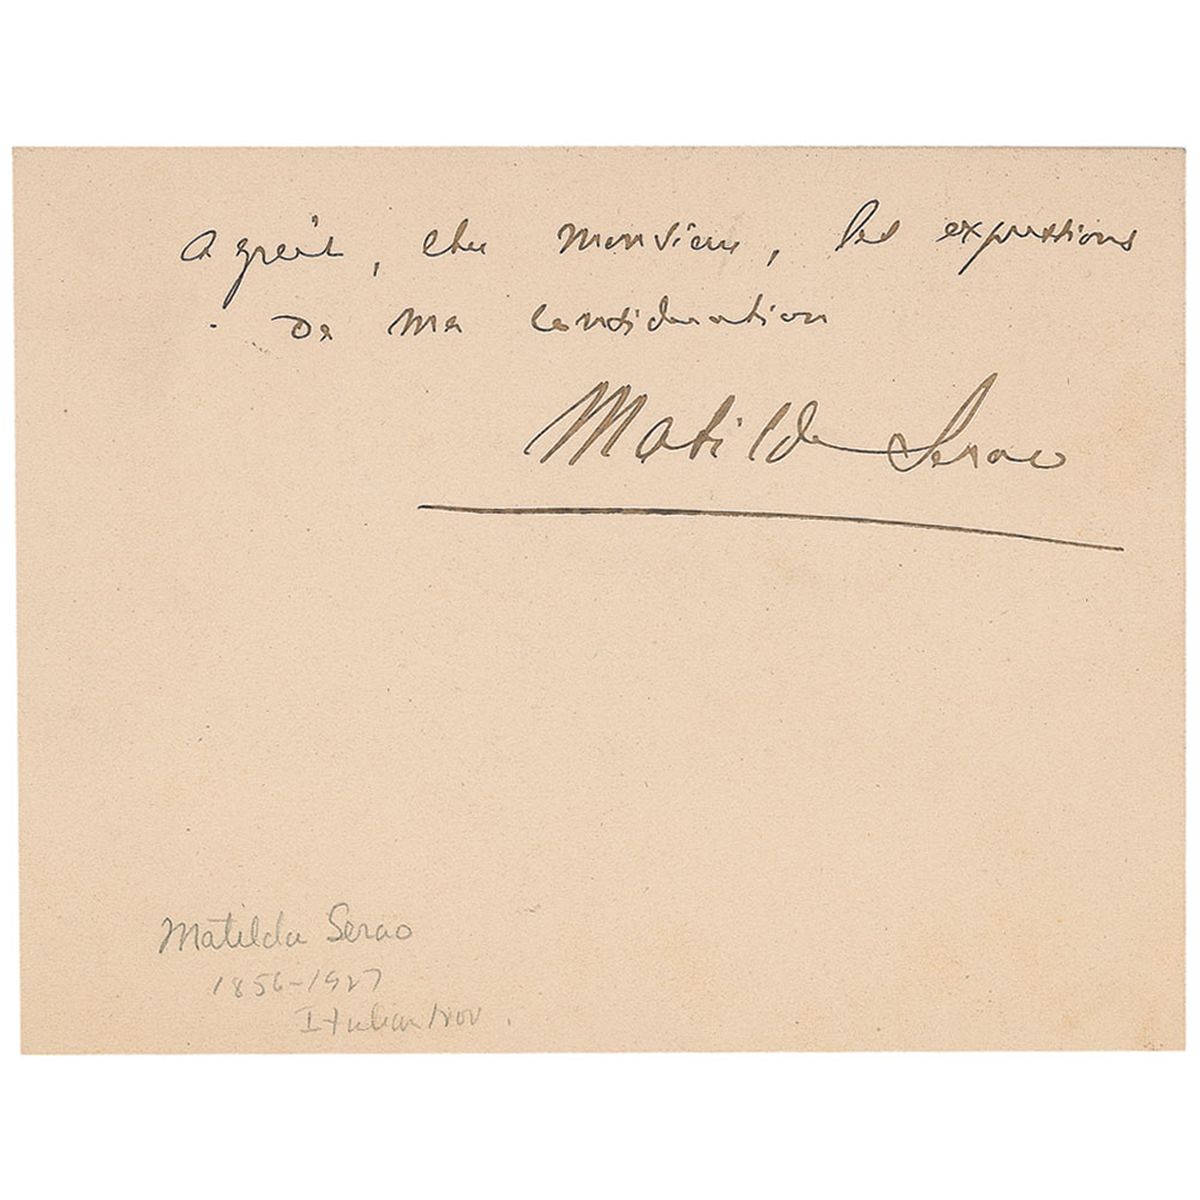 agréez, cher Monsieur, les expressions
de ma consideration
Matilde Serao
Matilda Serao
1856-1927
Italian nov.